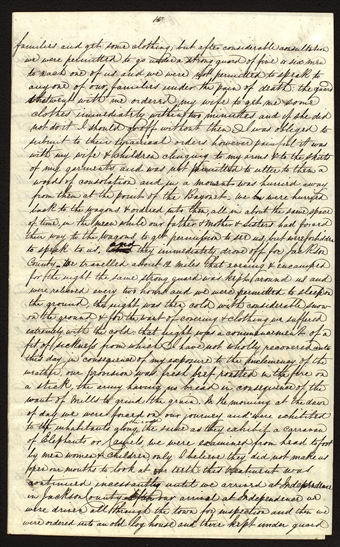 families and get some clothing, but after considerable consultation
we were permitted to go under a strong guard of five or six men
to each one of us and we were not permitted to speak to
any one of our families under the pain of death. the guard
that went with me ordered my wife to get me some
clothes immediately within two minutes and if she did
not do it I should go off without them. I was obliged to
submit to their tyranical orders however painful it was
with my wife & children clinging to my arms & to the skirts
of my garments and was not permitted to utter to them a
word of consolation and in a moment was hurried away
from them at the point of the Bayonet. We were hurried
back to the wagons & ordered into them, all in about the same space
of time. In the mean while our father & Mother & Sisters had forced
their way to the wagons to get permission to see us but were forbiden
to speak to us and they immediately drove off for Jackson
County. We travelled about 12 miles that evening & encamped
for the night the same strong guard was kept around us and
were relieved every two hours and we were permitted to sleep on
the ground the nights was then cold with considerable snow
on the ground & for the want of covering & clothing we suffered
extremely with the cold. that night was a commencement of a
fit of sickness from which I have not wholly recovered unto
this day in consequence of my exposure to the inclemency of the
weather. our provision was fresh beef roasted in the fire on
a stick the army having no bread in consequence of the
want of Mills to grind the grain. In the morning at the dawn
of day we were forced on our journey and were exhibited
to the inhabitants along the road the same as they exhibit a carravan
of Elephants or Camels, we were examined from head to foot
by men women & children only I believe they did not make us
open our mouths to look at our teeth this treatment was
continued incessantly until we arrived at Independence
in Jackson County after our arrival at Independence we
were driven all through the town for inspection and then we
were ordered into an old log house and there kept under guard